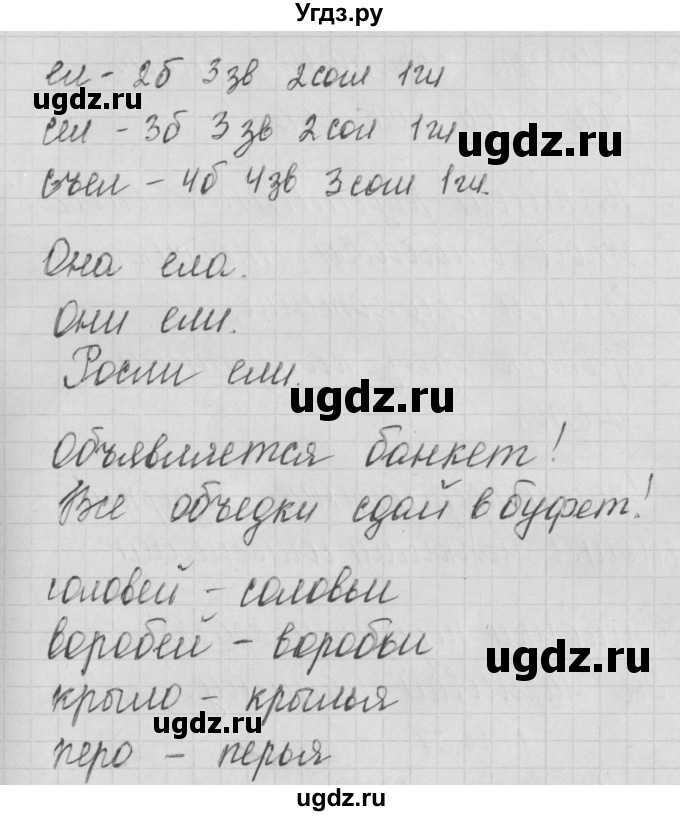 Угдз.ру
ел - 2б 3зв 2сог 1гл
ugdz.ru
сел - 3б 3зв 2сог 1гл
ugdz.ru
съел - 4б 4зв 3сог 1гл.
Она ела.
Они ели.
Росли ели.
ugdz.ru
Объявляется банкет!
Все объедки сдай в буфет!
соловей - соловьи
воробей - воробьи
ugdz.ru
крыло - крылья
ugdz.ru
перо - перья
ugdz.ru